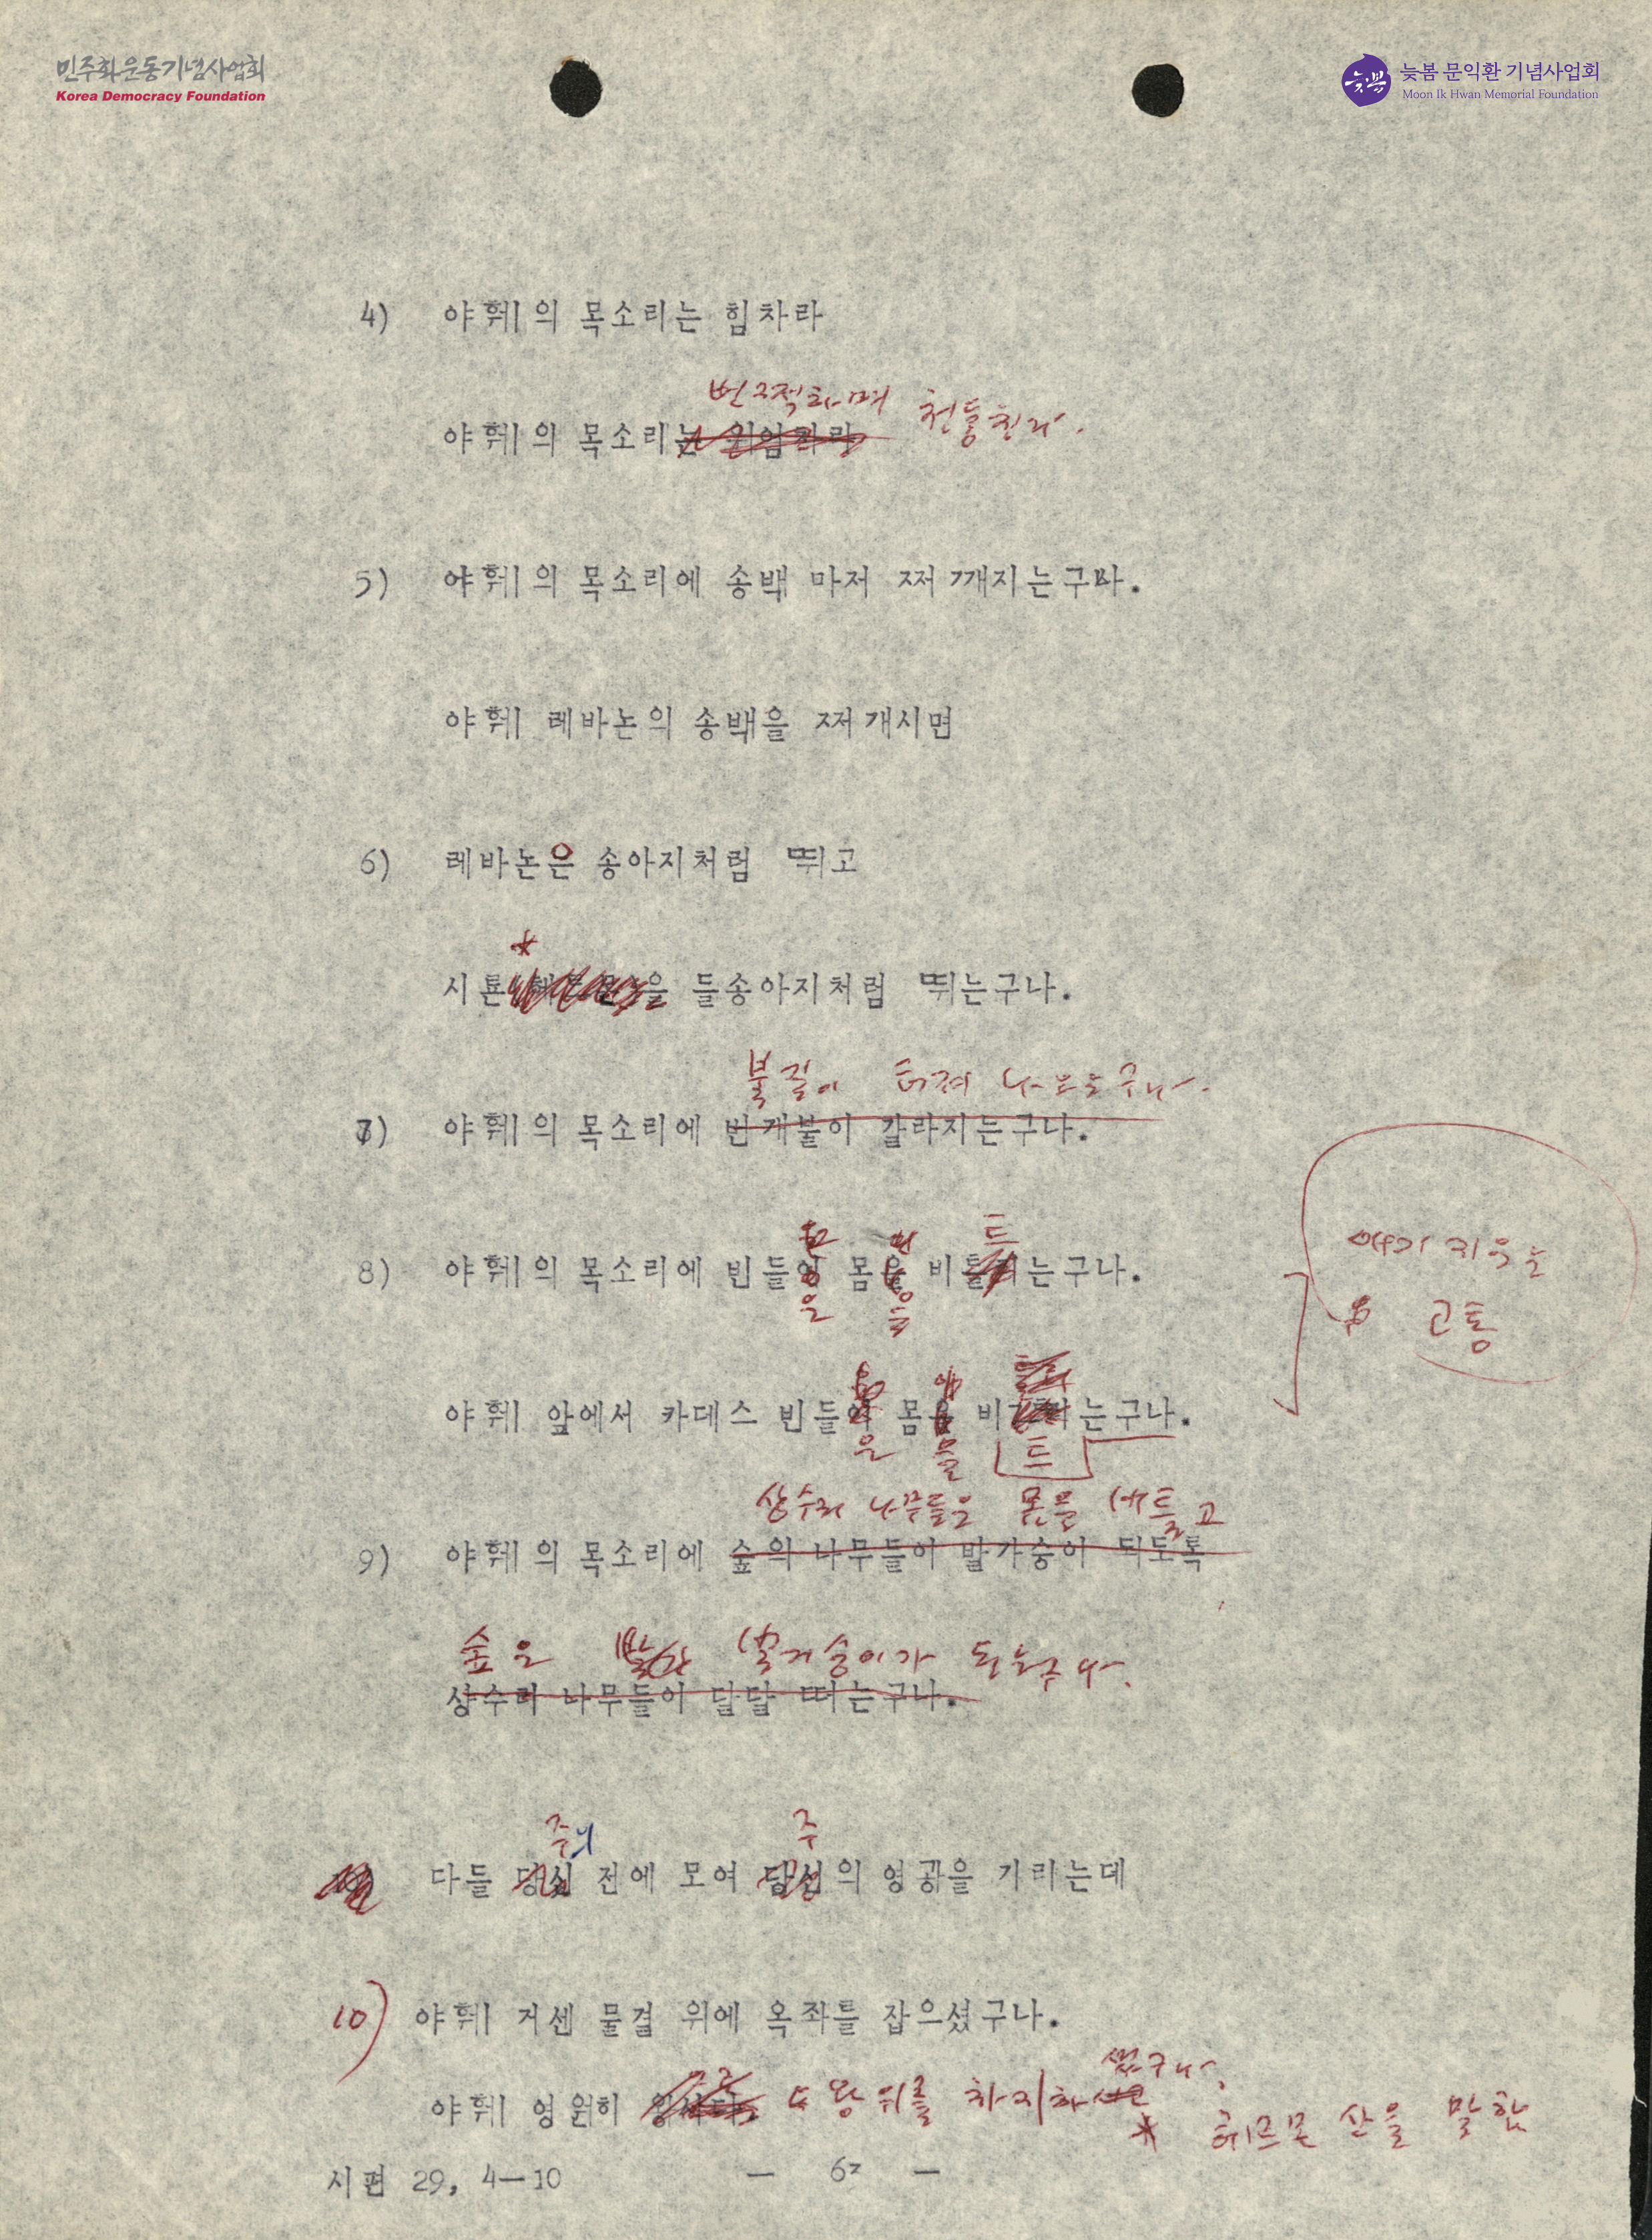 민주화운동기념사업회
Korea Democracy Foundation
늦봄
늦봄 문익환 기념사업회
Moon Ik Hwan Memorial Foundation
4) 야훼의 목소리는 힘차라
번쩍하며 천둥친다.
야훼의 목소리는 위엄차라
5) 야훼의 목소리에 송백 마저 쩌 개지는구나.
야훼 레바논의 송백을 쩌개시면
6) 레바논은 송아지처럼 뛰고
*
시룐 을 들송아지처럼 뛰는구나.
불길이 터져 나오는구나.
7) 야훼의 목소리에 번개불이 갈라지는구나.
트
8) 야훼의 목소리에 빈들이 몸을 비틀리는구나.
은 틀
아기 지우는
고통
야훼 앞에서 카데스 빈들이 몸을 비 는구나.
은 틀 트
상수리 나무들은 몸을 비틀고
9) 야훼의 목소리에 숲의 나무들이 발가숭이 되도록
숲은 벌거숭이가 되는구나.
상수리 나무들이 달달 떠는구나.
주 주
다들 당신 전에 모여 당신의 영광을 기리는데
10) 야훼 거센 물결 위에 옥좌를 잡으셨구나.
셨구나.
야훼 영원히 왕위를 차지하시
* 헤르몬 산을 말함
시편 29, 4—10 — 67 —